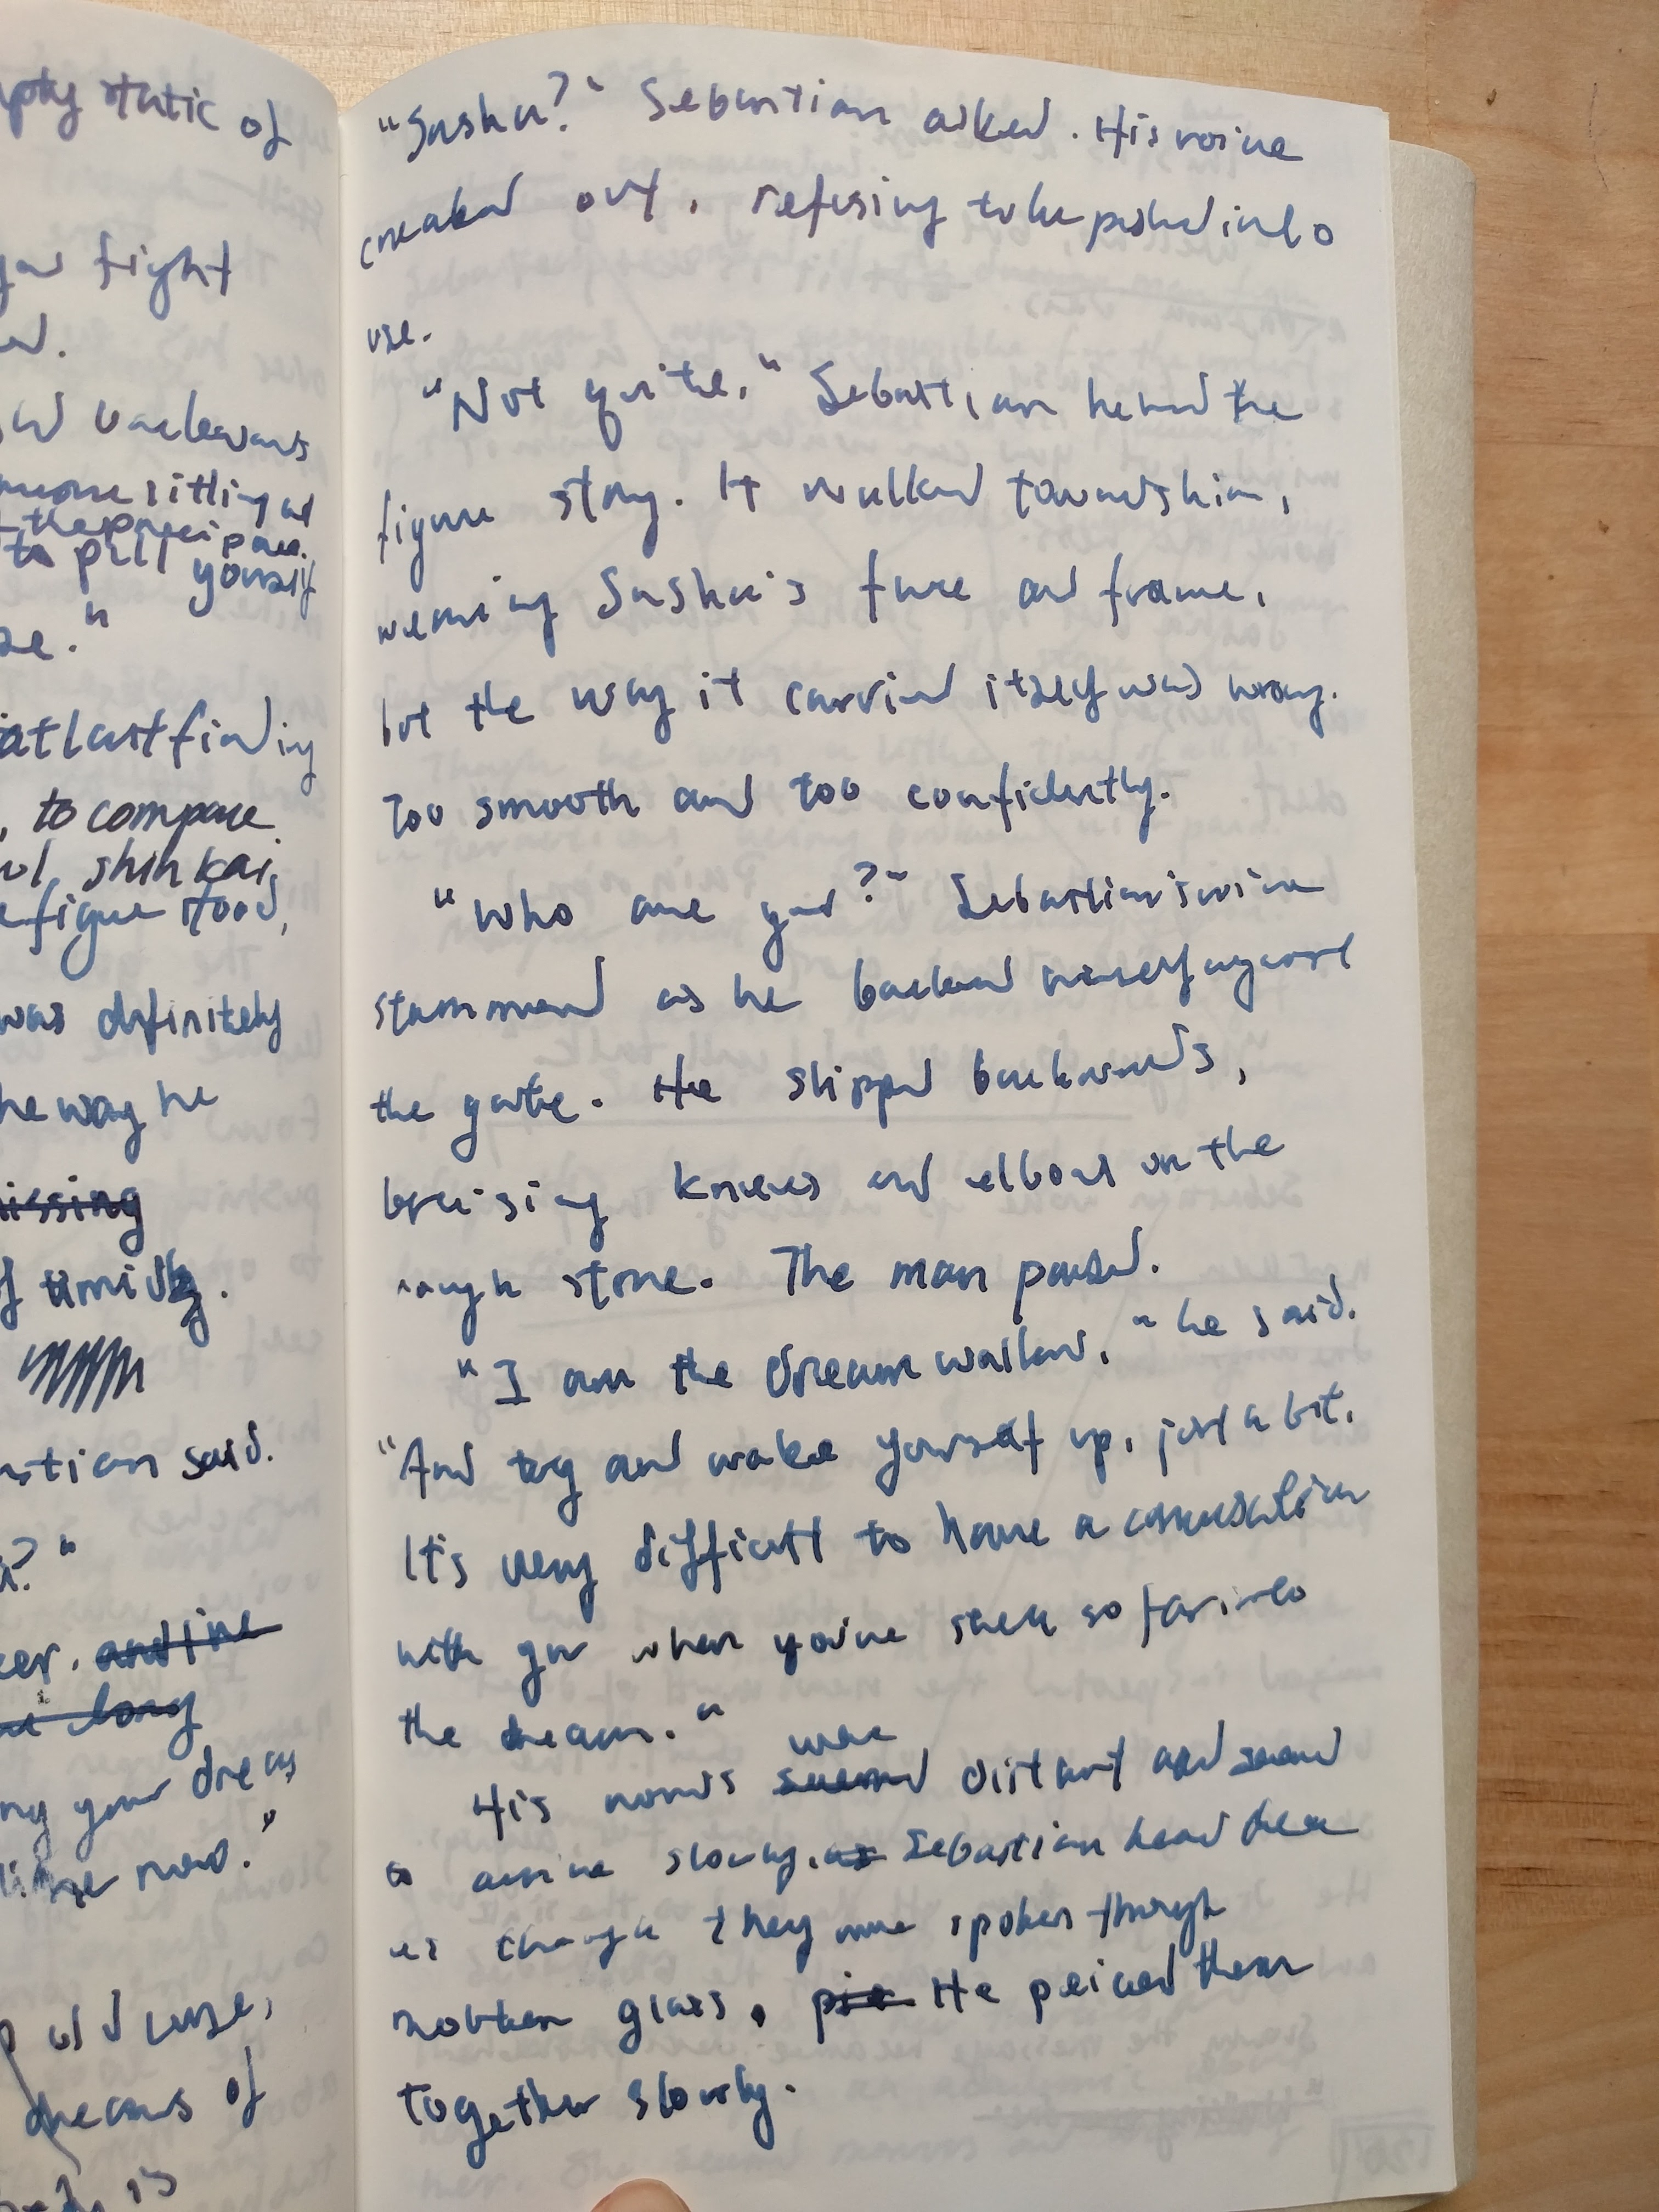 pty static of
fight
backwards
someone sitting at
the precipace.
to pull yourself
at last finding
, to compare
shinkai,
figure stood,
was definitely
he way he
missing
of timidity.
astian said.
?"
and the
long
ny your dreams
now."
old
dreams of
is
"Sasha?" Sebastian asked. His voice
creaked out, refusing to be pushed into
use.
"Not quite," Sebastian heard the
figure say. It walked towards him,
wearing Sasha's face and frame,
but the way it carried itself was wrong.
Too smooth and too confidently.
"Who are you?" Sebastian's voice
stammered as he backed himself against
the gate. He slipped backwards,
bruising knees and elbows on the
rough stone. The man paused.
"I am the dream walker," he said.
"And try and wake yourself up, just a bit.
It's very difficult to have a conversation
with you when you're stuck so far into
the dream."
were
His words seemed distant and seemed
to arrive slowly, as Sebastian heard them
as though they were spoken through
molten glass. pie He peiced them
together slowly.